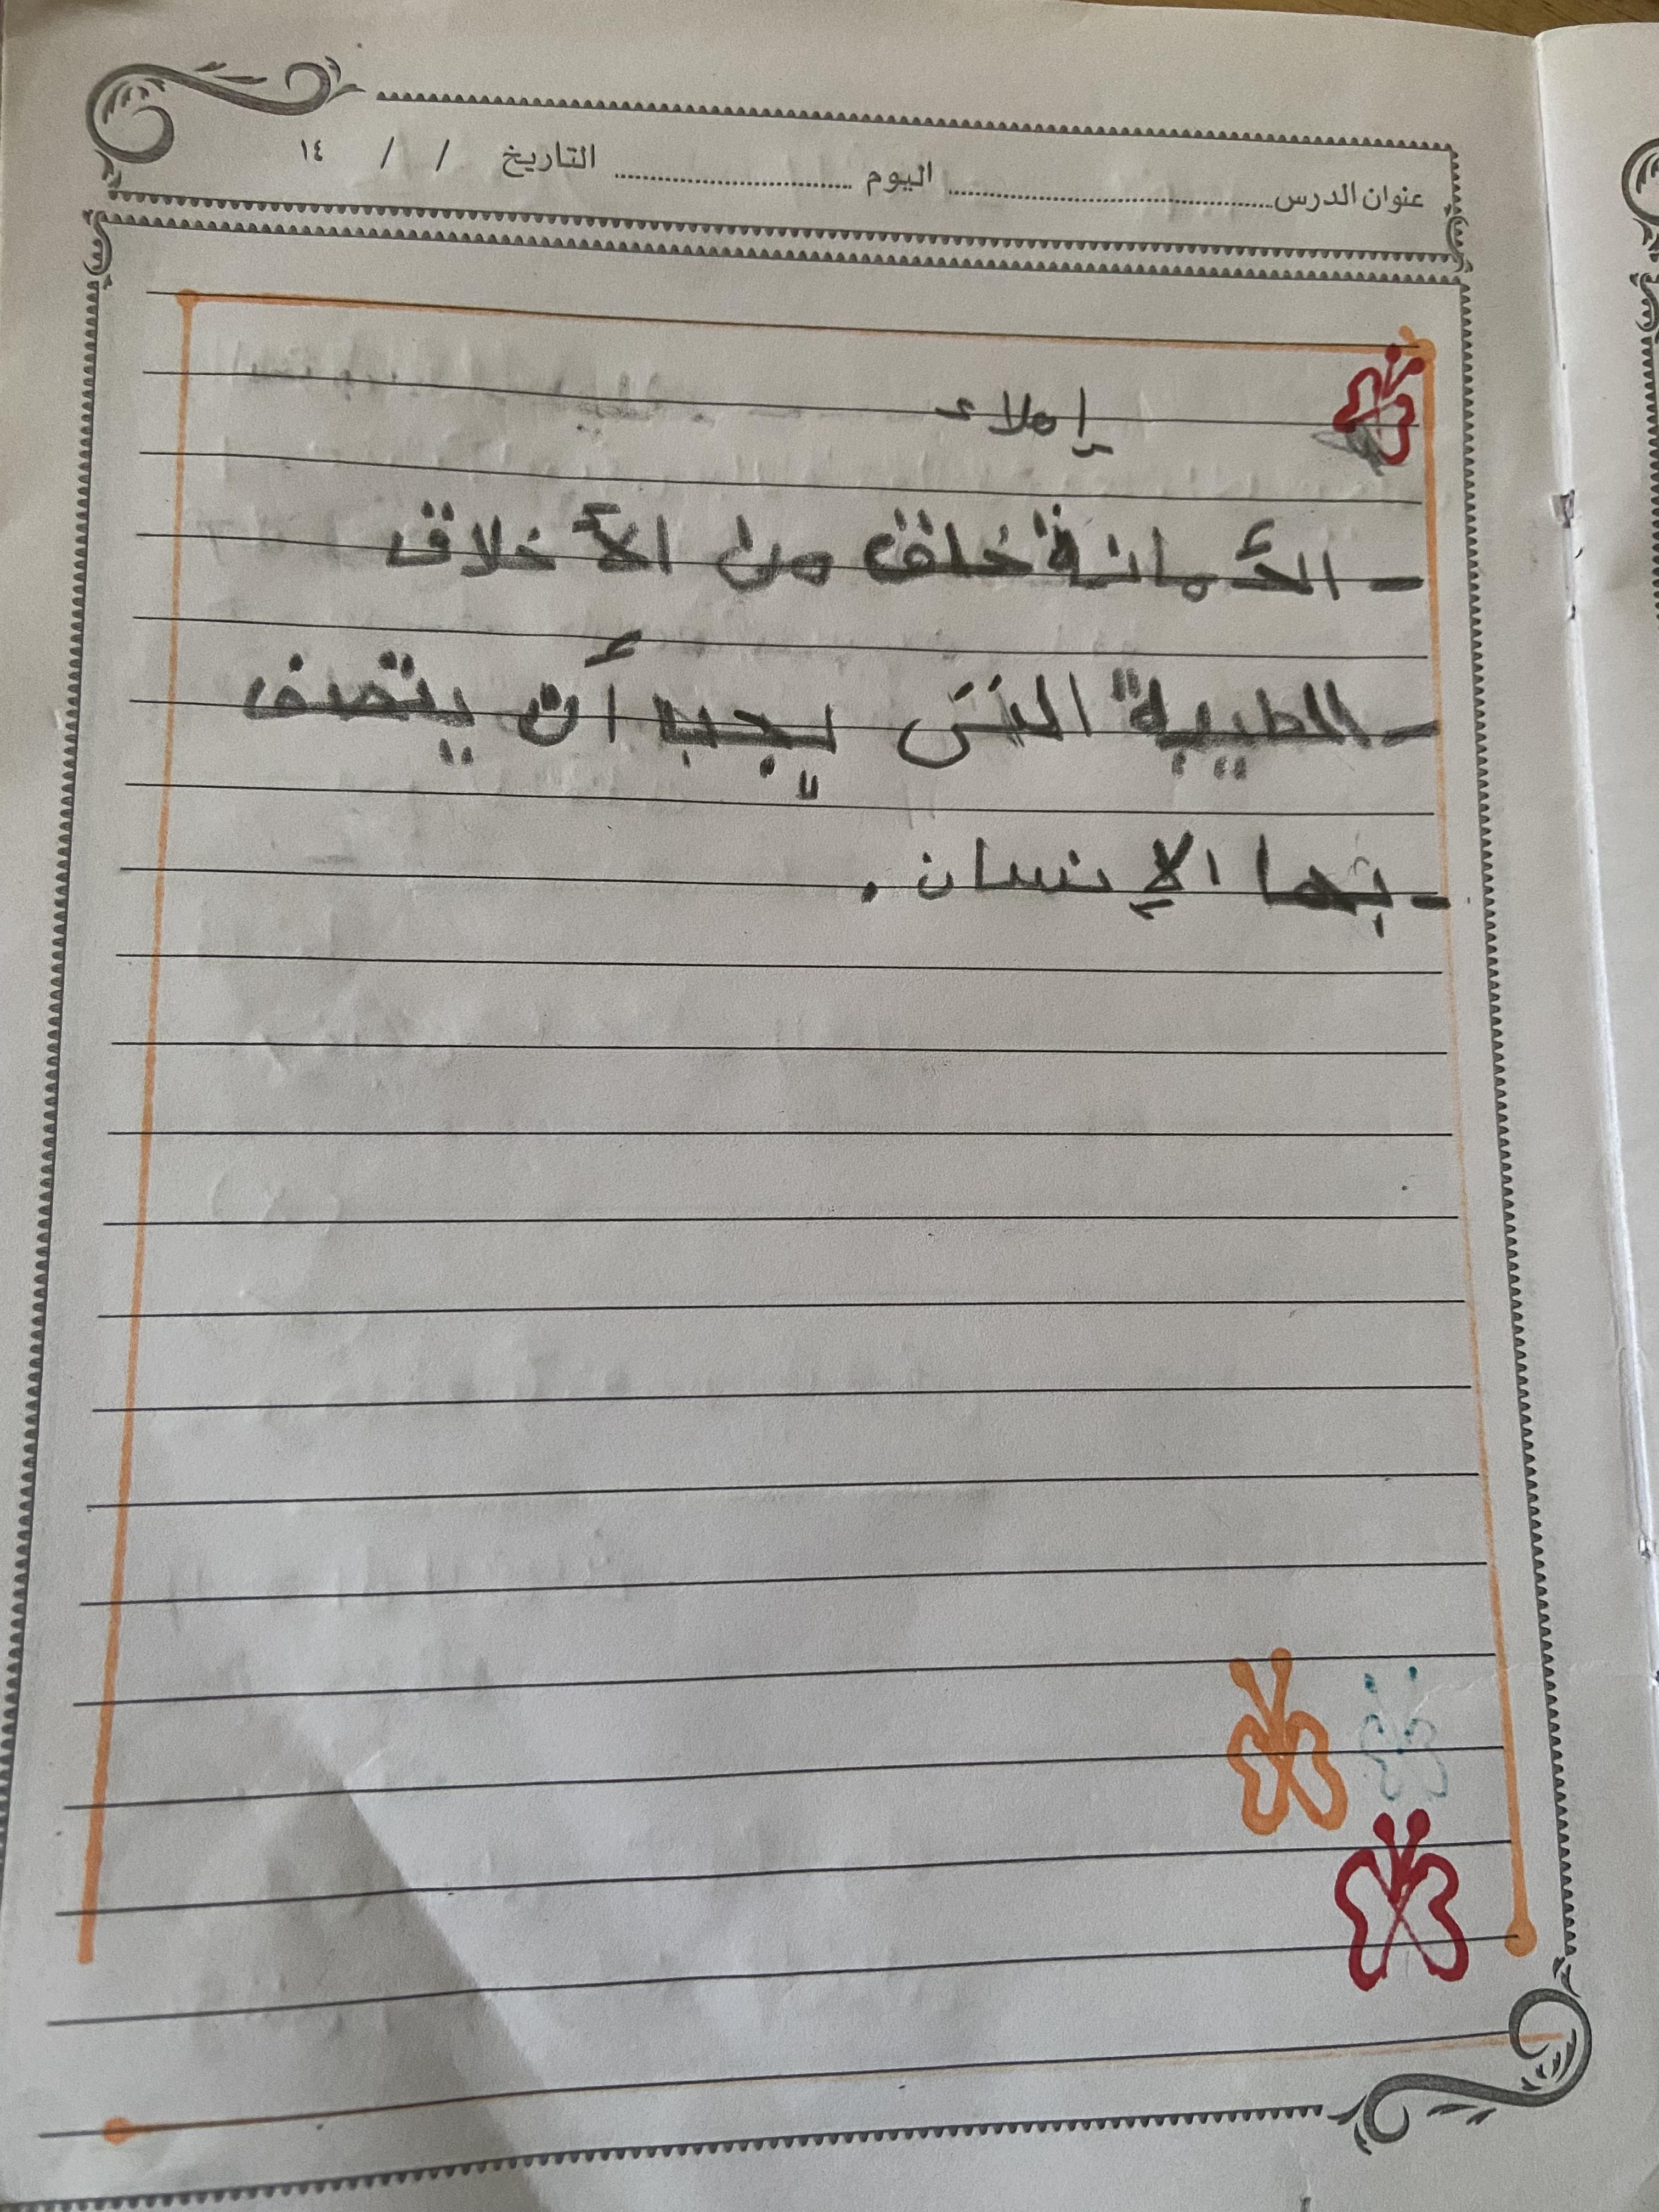 عنوان الدرس اليوم التاريخ / / ١٤
إملاء
- الأمانة خلق من الأخلاق
- الطيبة التي يجب أن يتصف
- بها الإنسان .